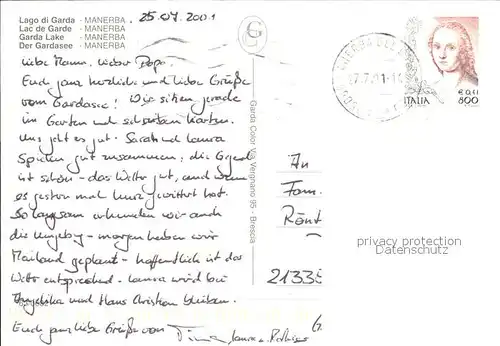 Lago di Garda - MANERBA
Lac de Garde - MANERBA
Garda Lake - MANERBA
Der Gardasee - MANERBA
25.07.2001
Liebe Mama, lieber Papa,
Euch ganz herzliche und liebe Grüße
vom Gardasee! Wir sitzen gerade
im Garten und schreiben Karten.
Uns geht es gut. Sarah und Laura
spielen gut zusammen, die Gegend
ist schön - das Wetter gut, auch wenn
es gestern mal kurz gewittert hat.
So langsam erkunden wir auch
die Umgebung - morgen haben wir
Mailand geplant - hoffentlich ist das
Wetter entsprechend. Laura wird bei
Angelika und Hans Christian bleiben.
Euch ganz liebe Grüße von
Laura +
Garda Color Via Vegnano 95 - Brescia
ITALIA
€ 0,41
800
An
Fam.
Rönt
21335
privacy protection
Datenschutz